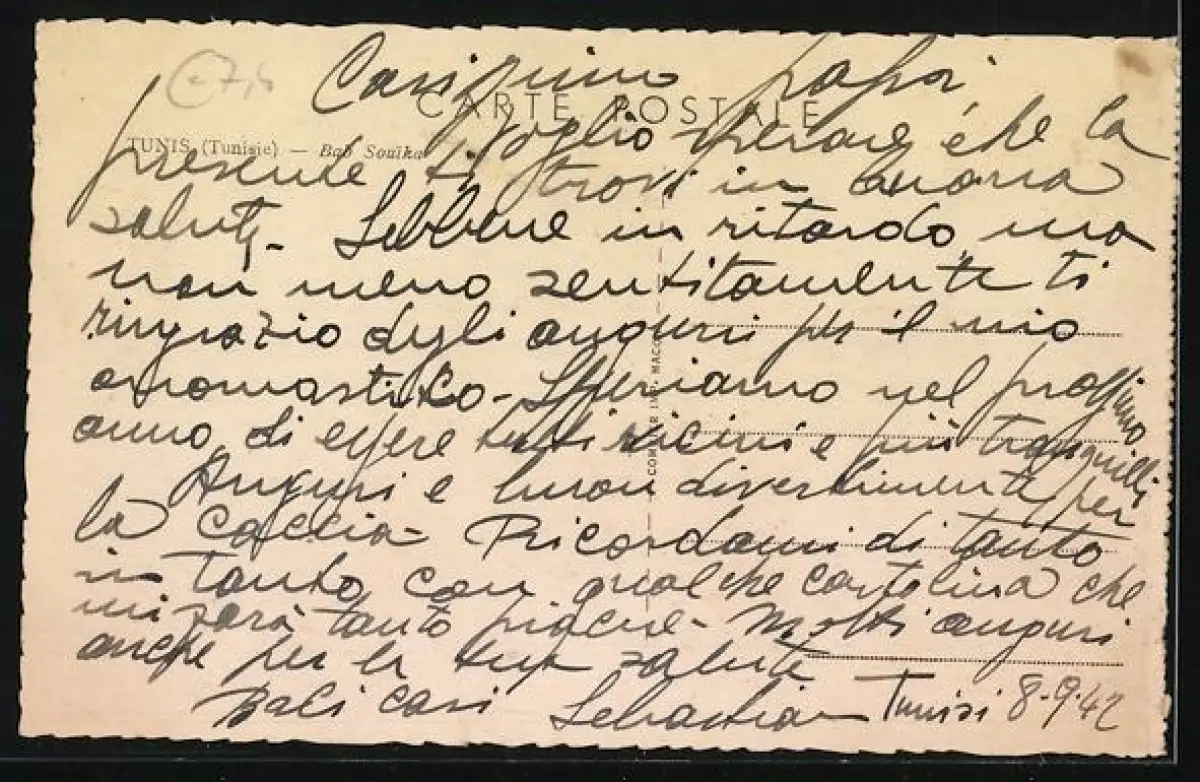 Carissimo papà,
CARTE POSTALE
TUNIS (Tunisie) — Bab Souïka
voglio sperare che la
presente ti trovi in buona
salute. Sebbene in ritardo, ma
non meno sentitamente ti
ringrazio degli auguri per il mio
onomastico - Speriamo nel prossimo
anno di essere tutti vicini e più tranquilli
Auguri e buon divertimento per
la caccia - Ricordami di tanto
in tanto con qualche cartolina che
mi sarà tanto piacere - Molti auguri
anche per la tua salute
Baci cari Sebastian Tunisi 8-9-42